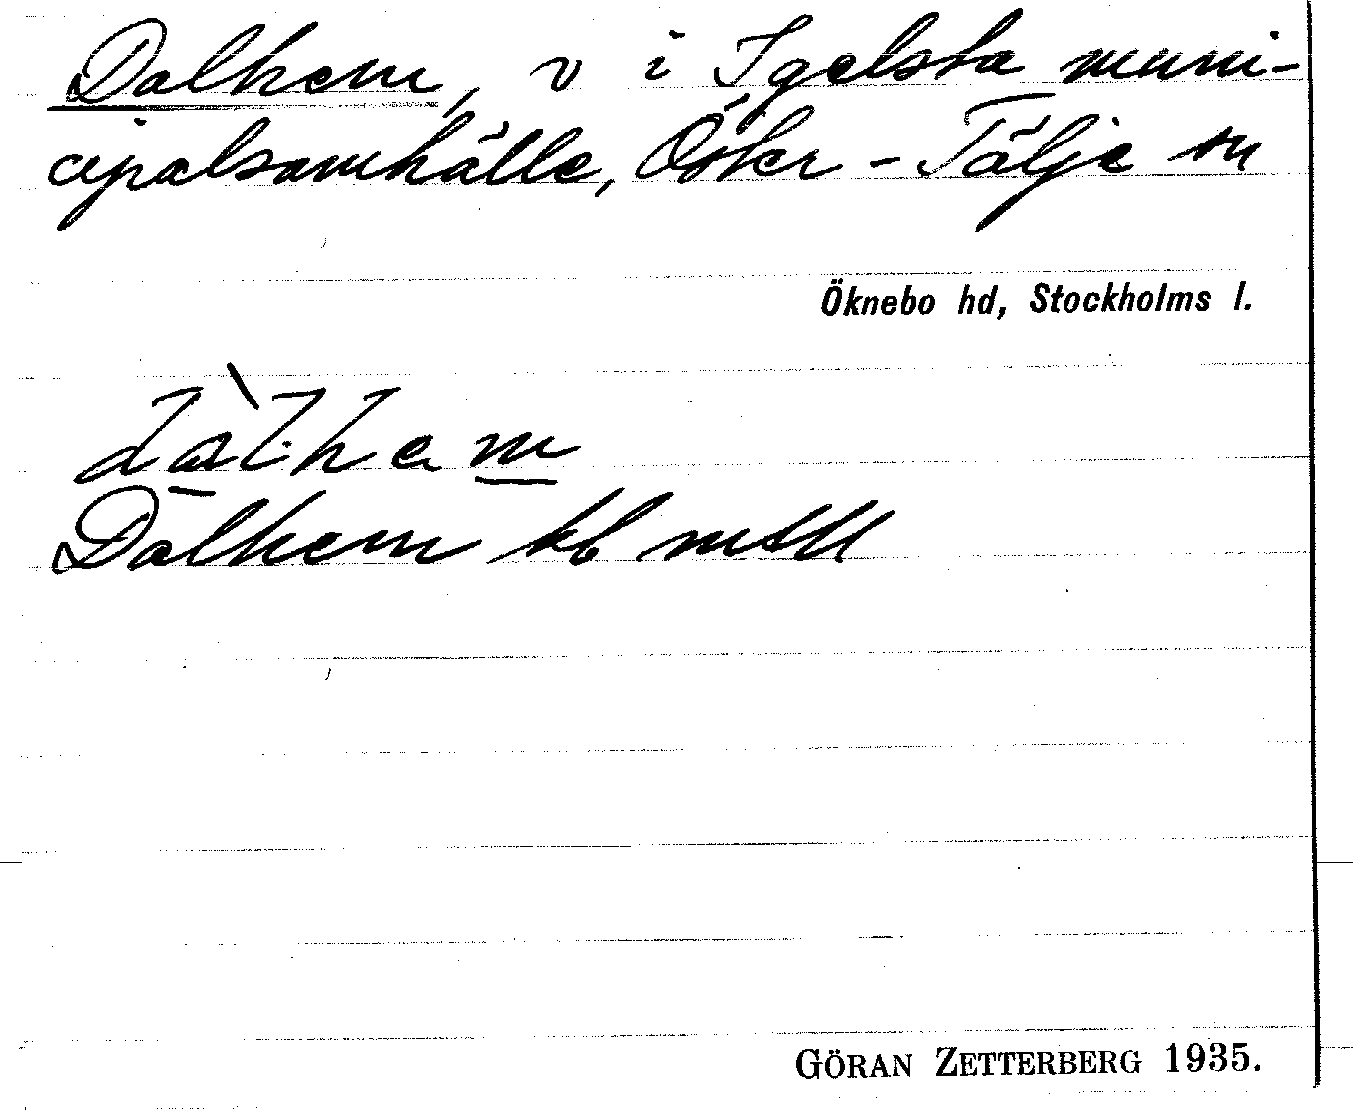 Dalhem, v i Igelsta muni-
cipalsamhälle, Öster-Tälje sn
Öknebo hd, Stockholms l.
dàl·hem
Dalhem kb mtll
GÖRAN ZETTERBERG 1935.